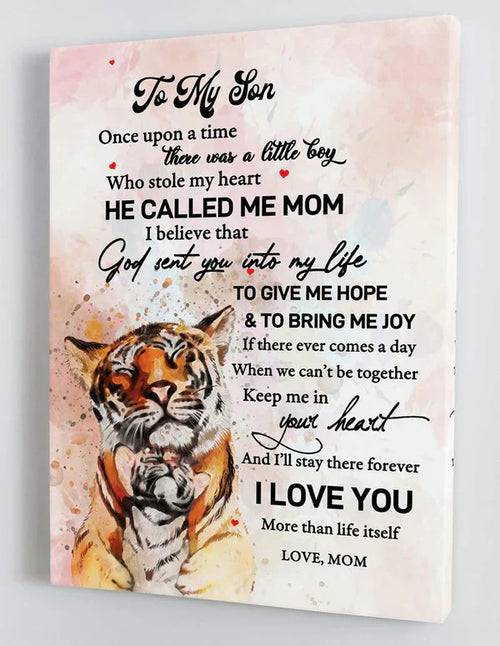 To My Son
Once upon a time
there was a little boy
Who stole my heart
HE CALLED ME MOM
I believe that
God sent you into my life
TO GIVE ME HOPE
& TO BRING ME JOY
If there ever comes a day
When we can't be together
Keep me in
your heart
And I'll stay there forever
I LOVE YOU
More than life itself
LOVE, MOM